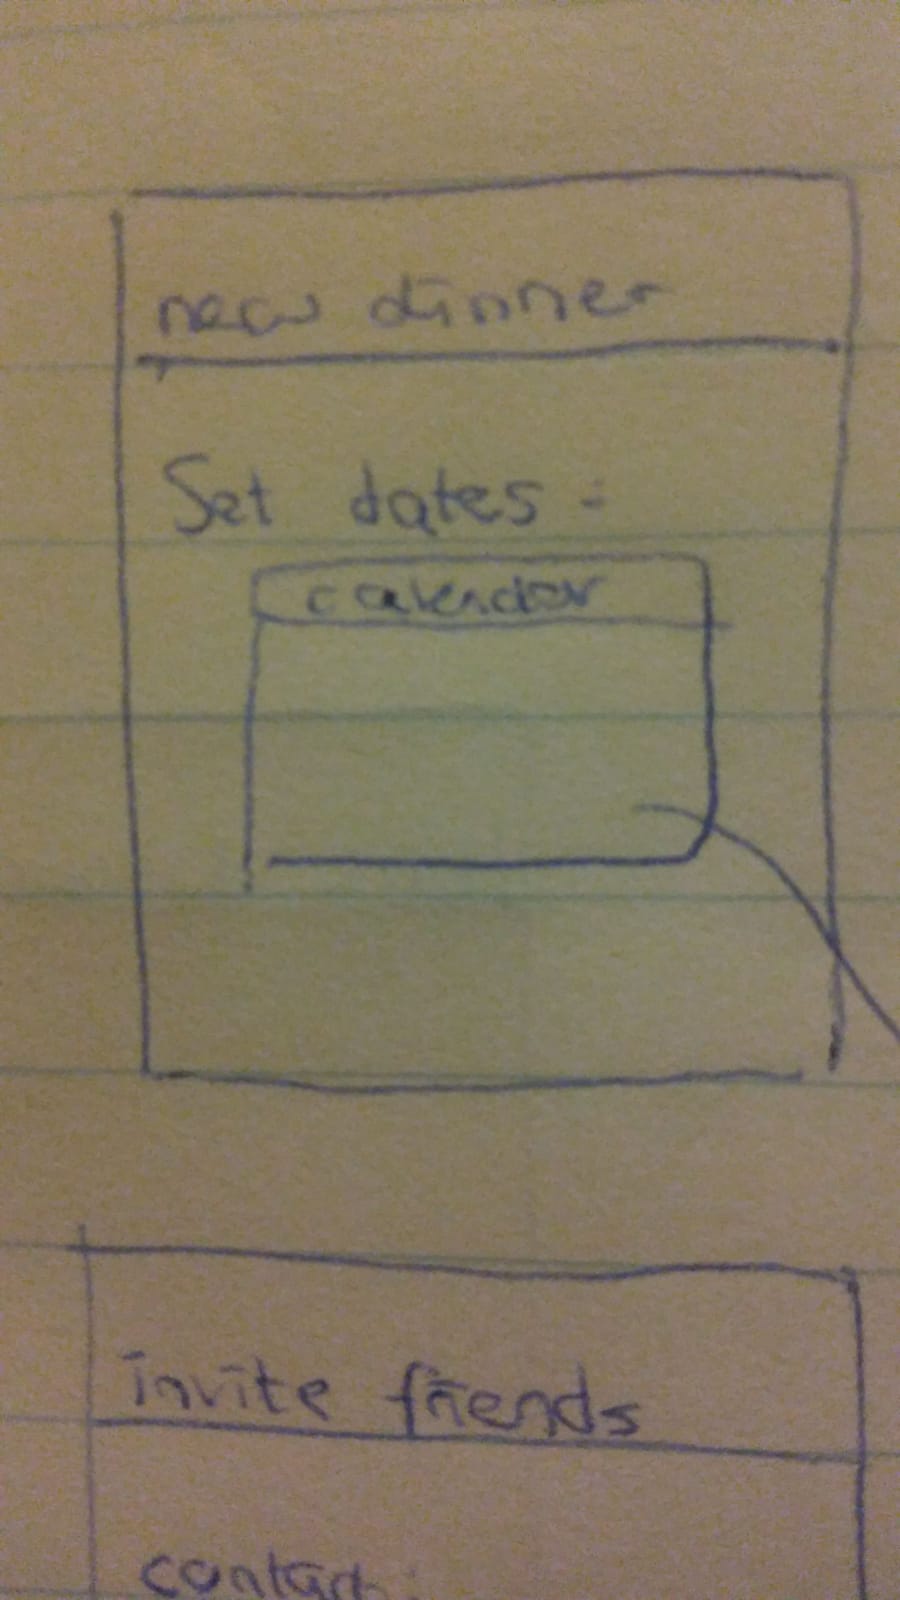 new dinner
Set dates:
calendar
invite friends
contact: